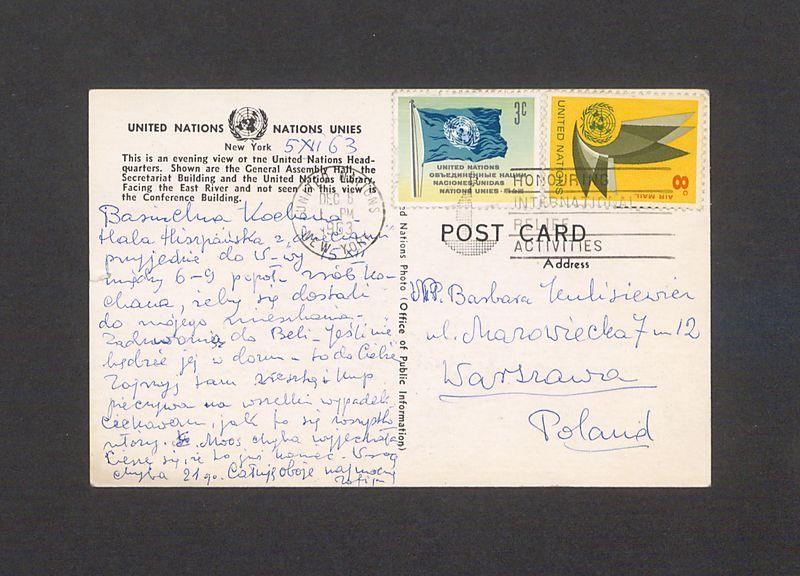 UNITED NATIONS NATIONS UNIES
New York 5 XII 63
This is an evening view of the United Nations Head-
quarters. Shown are the General Assembly Hall, the
Secretariat Building and the United Nations Library.
Facing the East River and not seen in this view is
the Conference Building.
Kochana-
Hala Hiszpańska z
przyjedzie do W-wy 15 XII
między 6-9 popoł. zrób ko-
chana, żeby się dostali
do mojego mieszkania-
do Beli-Jeśli nie
będzie jej w domu - to do Ciebie
tam zresztą i kup
pieczywa na wszelki wypadek
Ciekawam, jak to się wszystko
ułoży. Moos chyba wyjechała
Cieszę się, że to już koniec.
chyba 21go. Całuję oboje najmocniej
Zofia
UNITED NATIONS
DEC 6
PM
1963
NEW YORK
3c
UNITED NATIONS
ОБЪЕДИНЕННЫЕ НАЦИИ
NACIONES UNIDAS
NATIONS UNIES
UNITED NATIONS
8c
AIR MAIL
HONOURING
INTERNATIONAL
RELIEF
ACTIVITIES
POST CARD
Address
d Nations Photo (Office of Public Information)
WP. Barbara
ul. Mazowiecka 7 m 12
Warszawa
Poland